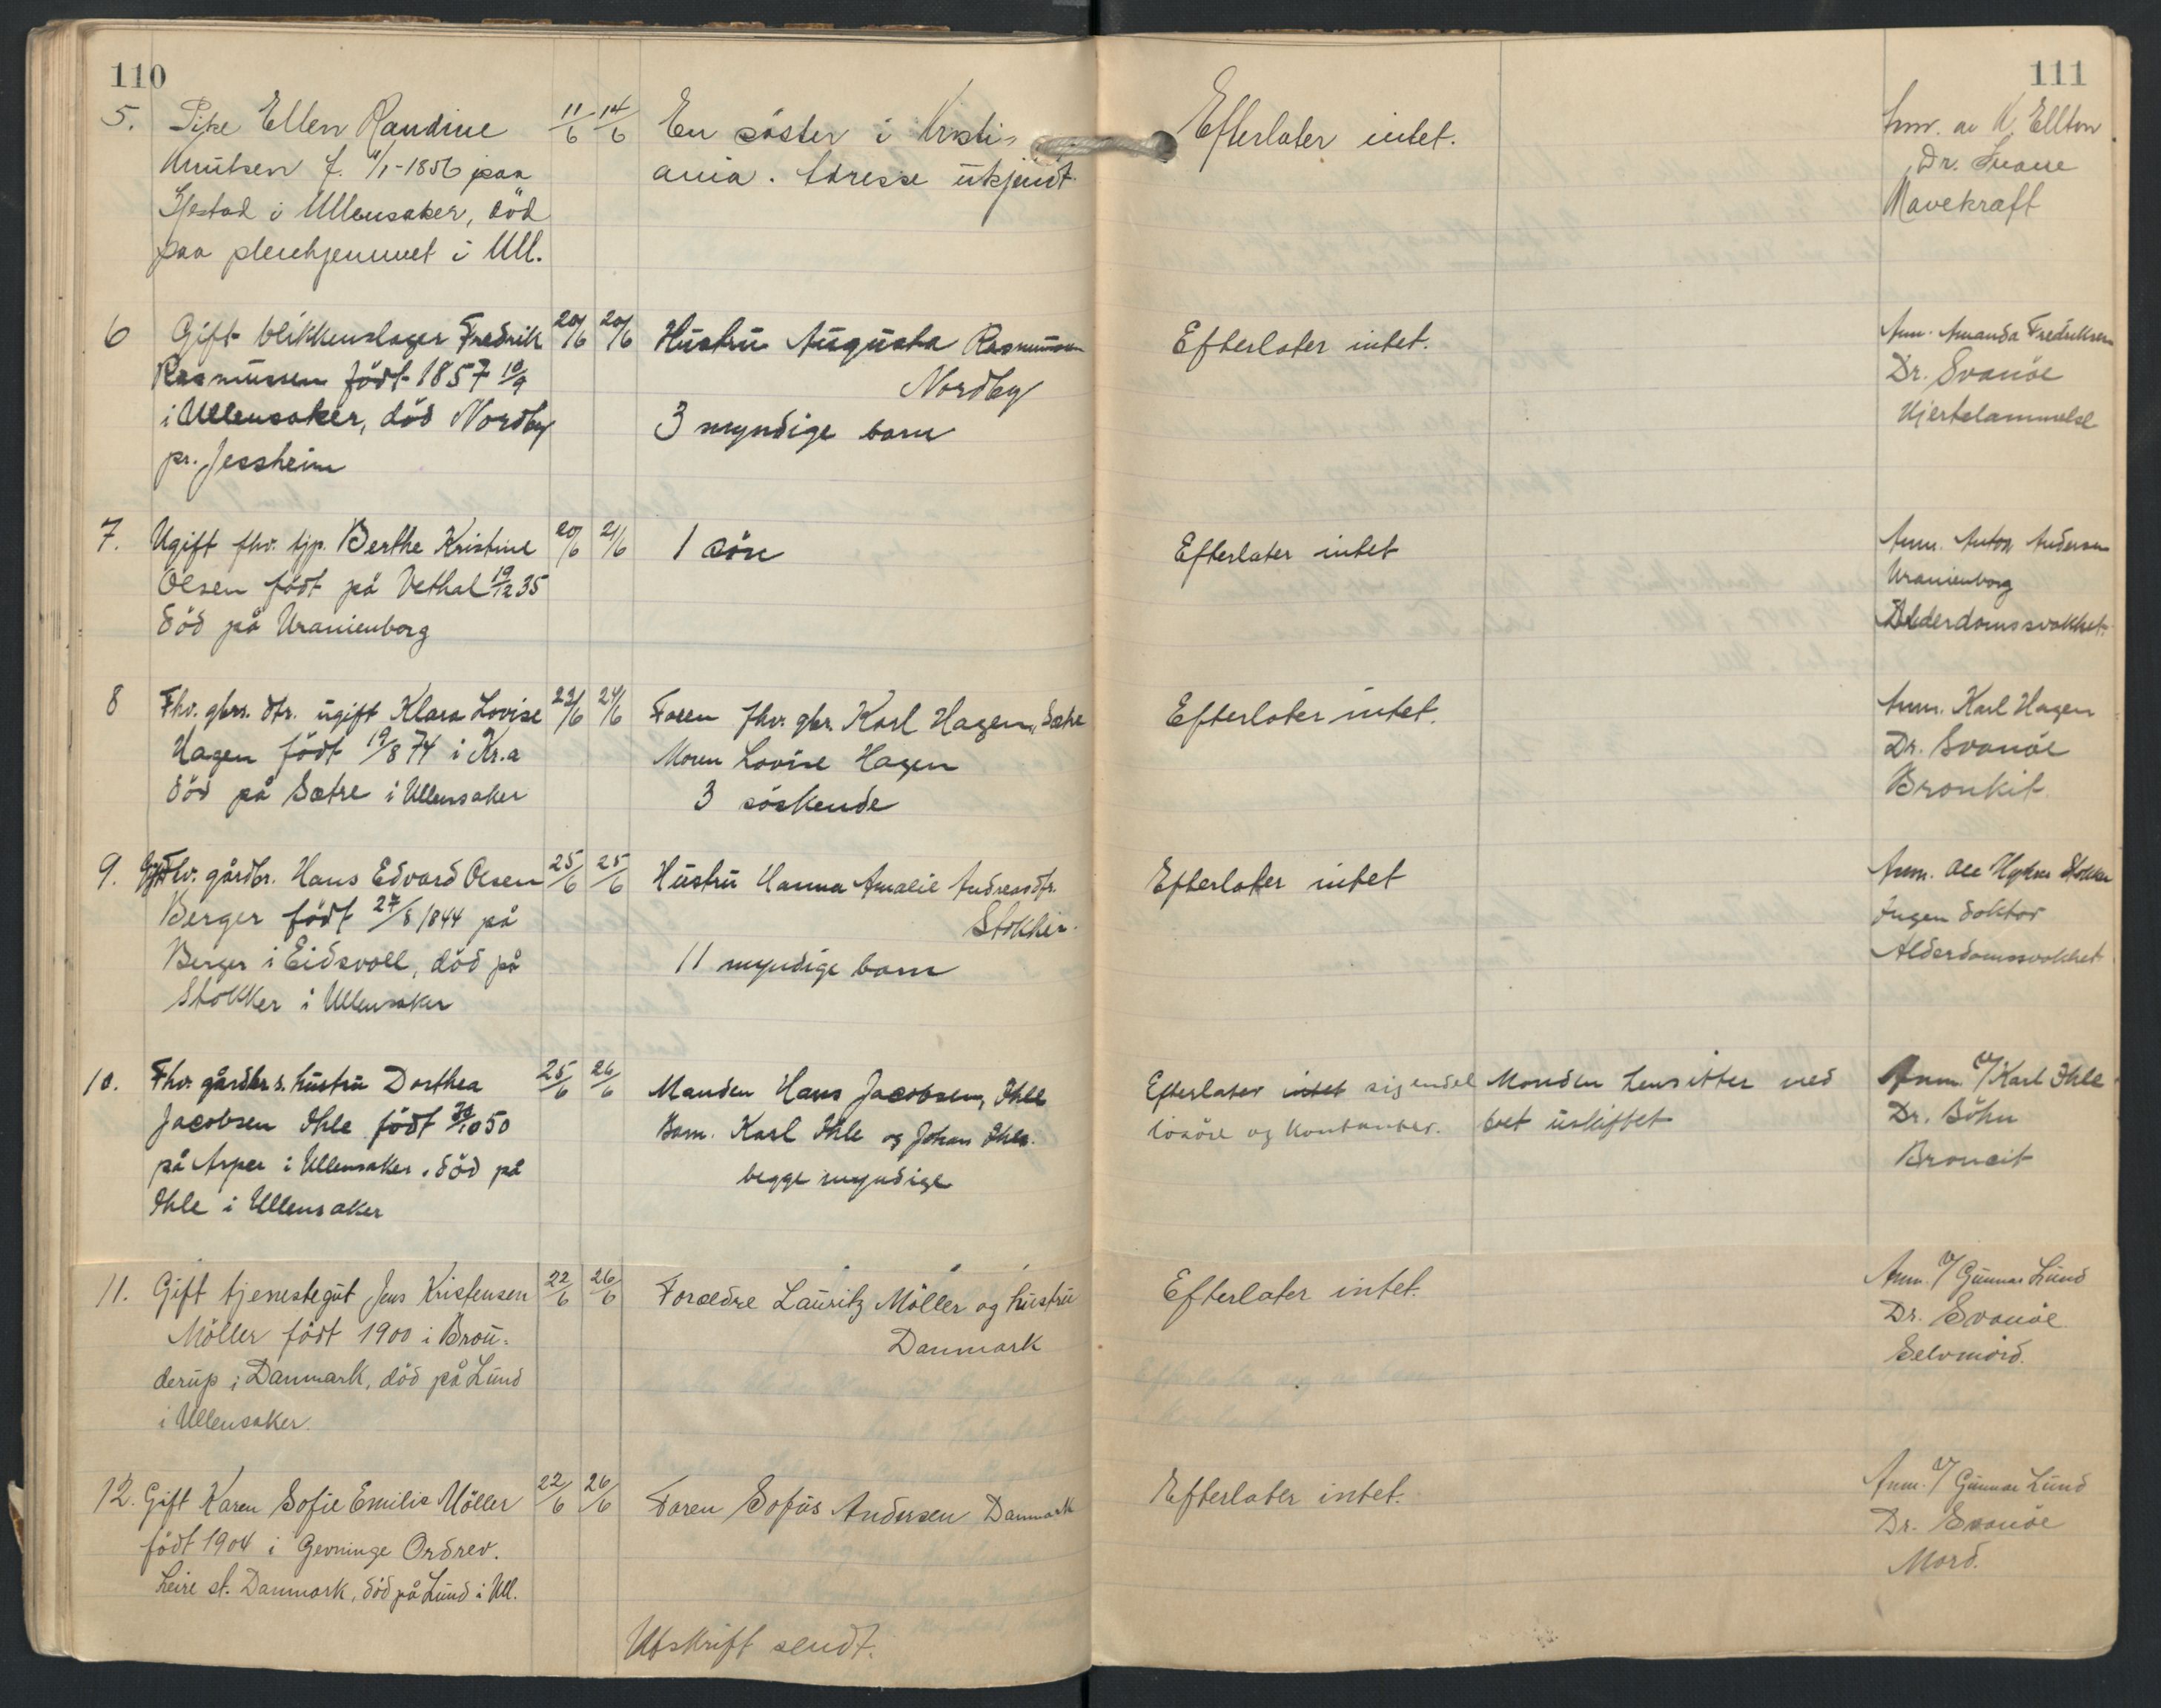 110
5. Pike Ellen Randine 11/6 14/6 En søster i Kristi-
Knutsen f. /1-1856 paa ania. Adresse ukjendt.
i Ullensaker, död
paa pleiehjemmet i Ull.
6 Gift blikkenslager Fredrik 20/6 20/6 Hustru Augusta Rasmussen
Rasmussen födt 1857 10/9 Nordby
i Ullensaker, död Nordby 3 myndige barn
pr. Jessheim
7. Ugift fhv. tjp. Berthe Kristine 20/6 21/6 1 sön
Olsen födt på Vethal 19/12 35
död på Uranienborg
8 Fhv. gbrs. dtr. ugift Klara Lovise 23/6 24/6 Faren fhv. gbr. Karl Hagen, Sætre
Hagen födt 19/8 74 i Kr.a Moren Lovise Hagen
död på Sætre i Ullensaker 3 söskende
9. Gift Fhv. gårdbr. Hans Edvard Olsen 25/6 25/6 Hustru Hanna Amalie Andreasdtr.
Berger födt 27/8 1844 på Stokker.
Berger i Eidsvoll, död på 11 myndige barn
Stokker i Ullensaker
10. Fhv. gårdbr.s. hustru Dorthea 25/6 26/6 Manden Hans Jacobsen, Ihle
Jacobsen Ihle födt /10 50 Barn. Karl Ihle og Johan Ihle.
på Asper i Ullensaker. död på begge myndige
Ihle i Ullensaker
11. Gift tjenestegut Jens Kristensen 22/6 26/6 Forældre Lauritz Möller og hustru
Möller födt 1900 i Brou- Danmark
derup i Danmark, död på Lund
i Ullensaker.
12. Gift Karen Sofie Emilie Möller 22/6 26/6 Faren Sofus Andersen Danmark
födt 1904 i Gevninge Ordrev.
Leire st. Danmark, död på Lund i Ull.
Utskrift sendt.
111
Efterlater intet. Anm. av K. Ellton
Dr. Svanøe
Mavekræft
Efterlater intet. Anm. Amanda Fredriksen
Dr. Svanöe
Hjertelammelse
Efterlater intet Anm. Anton Andersen
Uranienborg
Alderdomssvakhet.
Efterlater intet. Anm. Karl Hagen
Dr. Svanöe
Bronkit.
Efterlater intet Anm. Ole Stokker
Ingen doktor
Alderdomssvakhet
Efterlater intet sig endel Manden hensitter med Anm. v/ Karl Ihle
lösöre og kontanter. bet uskiftet Dr. Böhn
Broncit
Efterlater intet. Anm. v/ Gunnar Lund
Dr. Svanöe
Selvmord.
Efterlater intet. Anm. v/ Gunnar Lund
Dr. Svanöe
Mord.